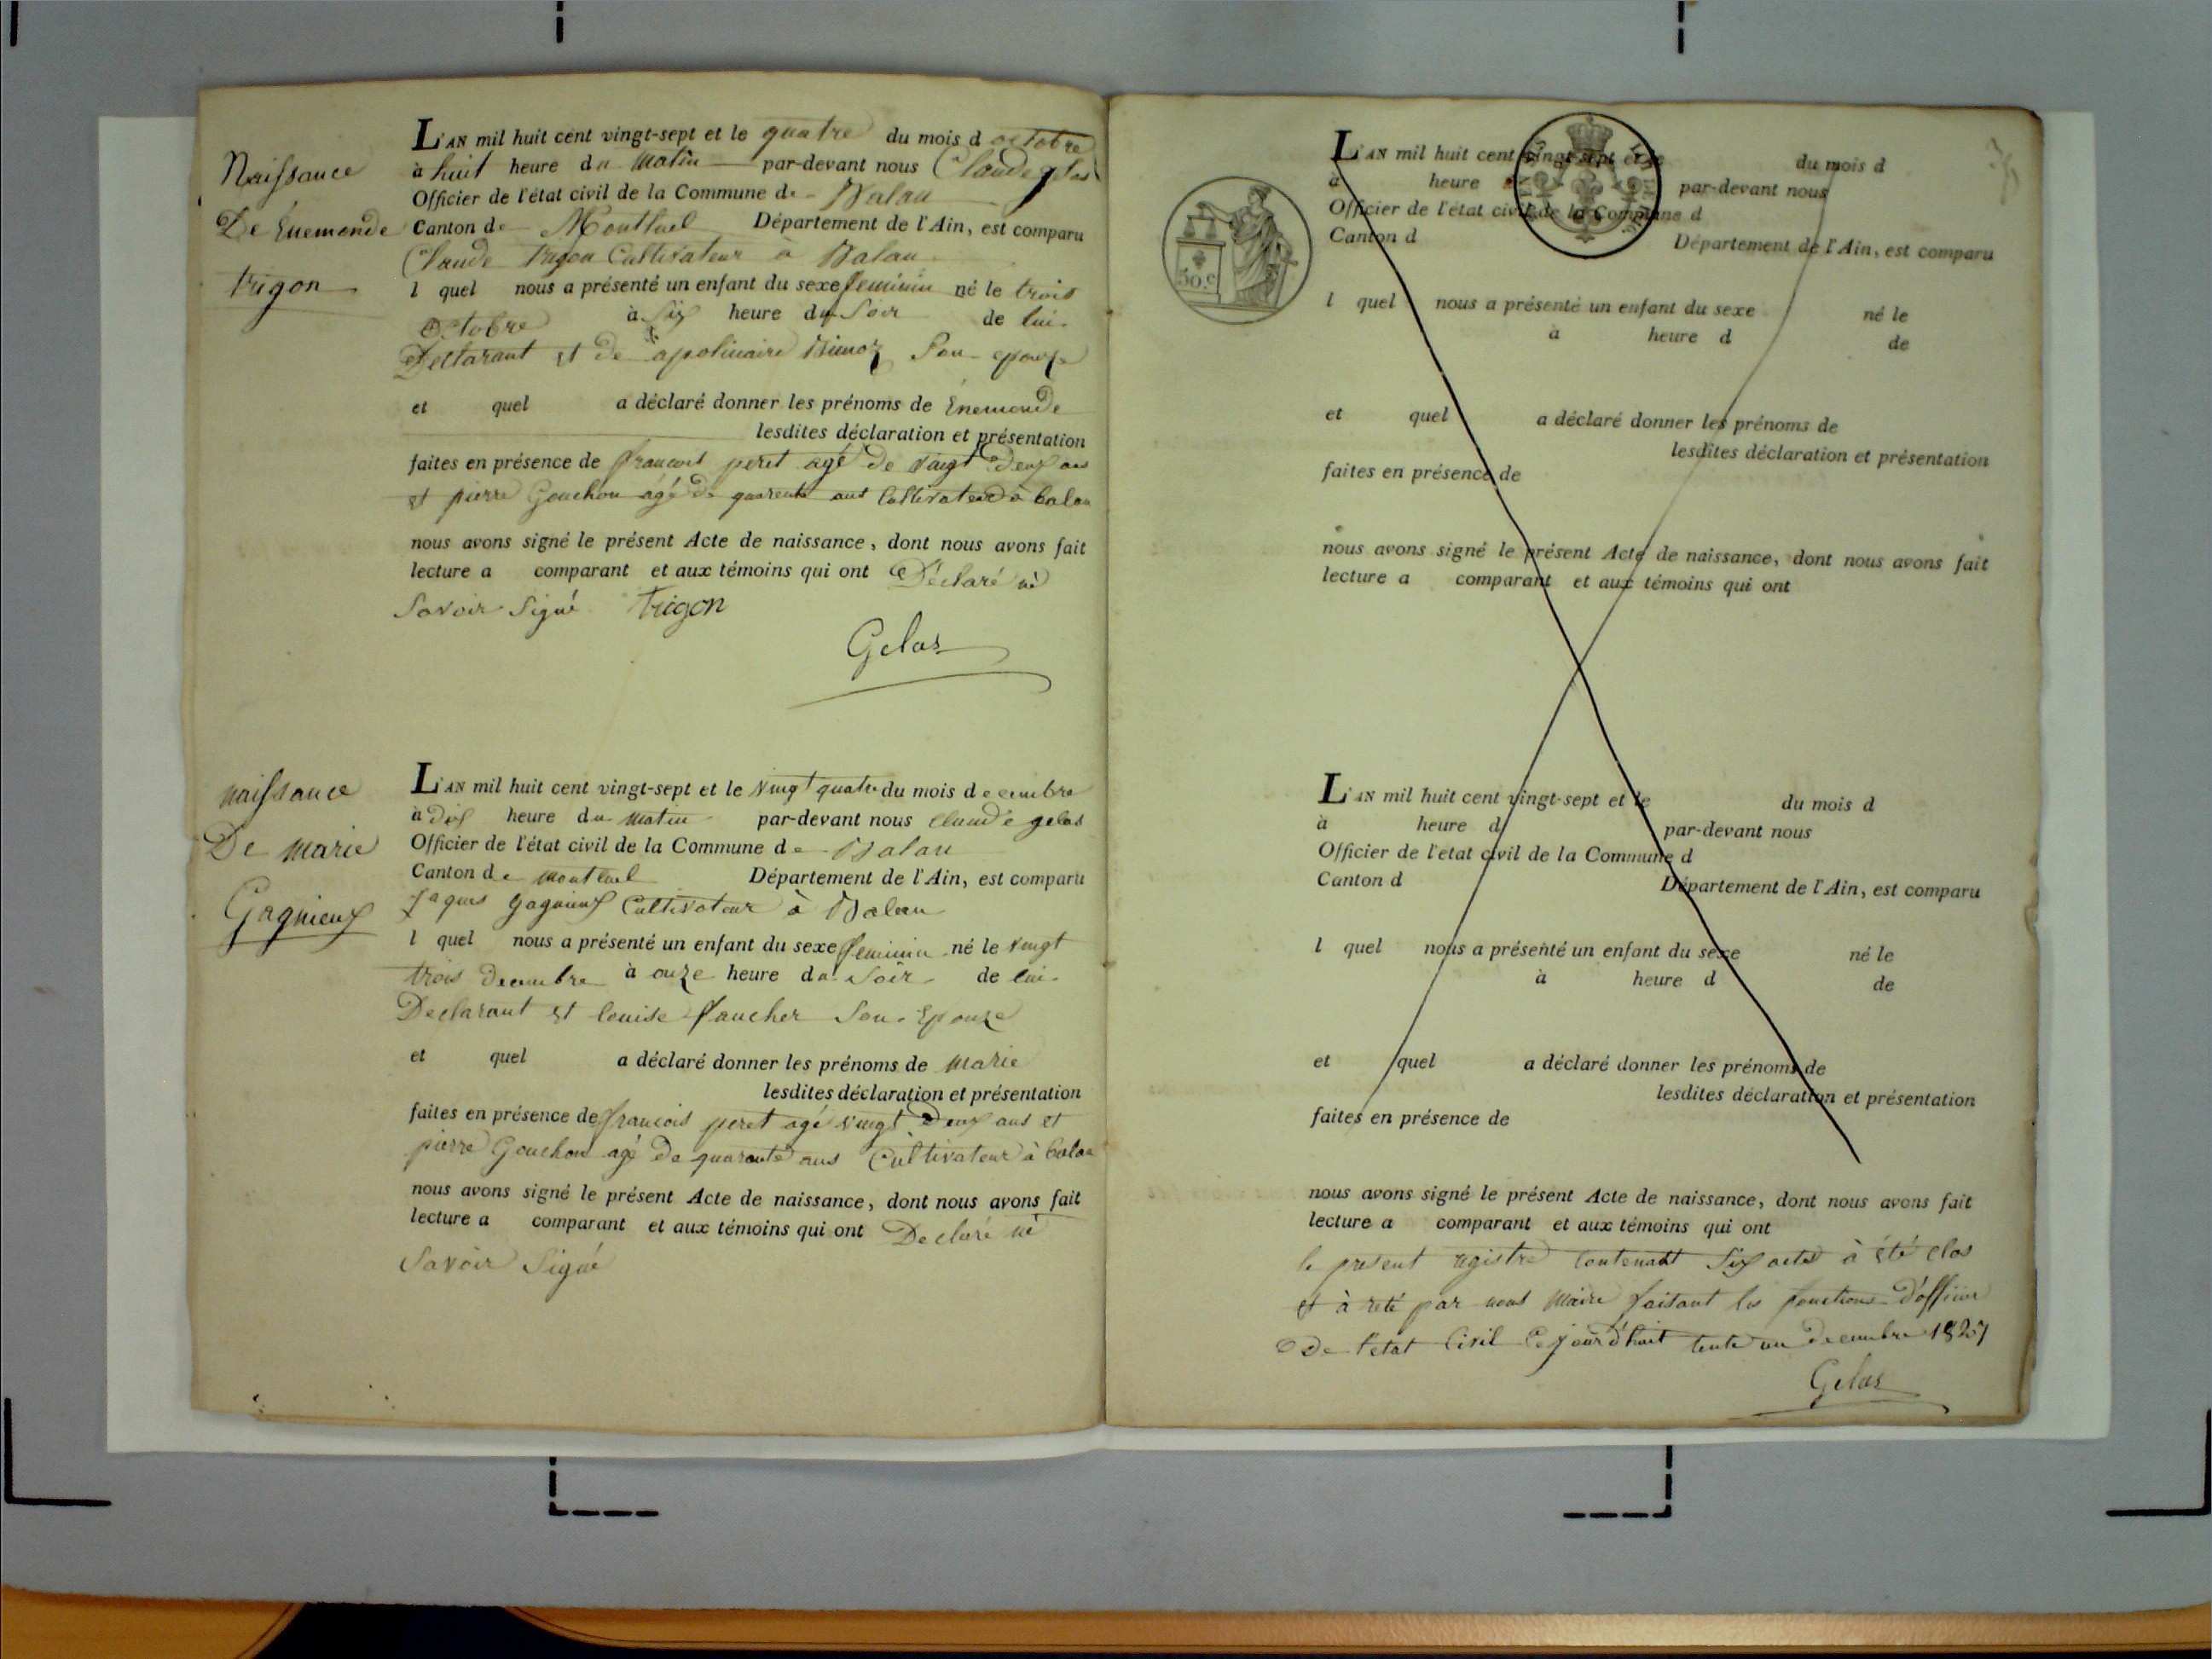 Naissance
De Énemonde
trigon
L'AN mil huit cent vingt-sept et le quatre du mois d octobre
à huit heure du matin par-devant nous Claude gelas
Officier de l'état civil de la Commune de Balan
Canton de Montluel Département de l'Ain, est comparu
Claude trigon Cultivateur à Balan
l quel nous a présenté un enfant du sexe feminin né le trois
Octobre à Six heure du Soir de lui
Declarant et de apolinaire Son epouse
et quel a déclaré donner les prénoms de Énemonde
lesdites déclaration et présentation
faites en présence de francois peret agé de vingt deux ans
et pierre Gouchon agé de quarente ans Cultivateur à balan
nous avons signé le présent Acte de naissance, dont nous avons fait
lecture a comparant et aux témoins qui ont Déclaré né
Savoir Signé trigon
Gelas
naissance
De marie
Gagnieux
L'AN mil huit cent vingt-sept et le vingt quatre du mois decembre
à dix heure du matin par-devant nous claude gelas
Officier de l'état civil de la Commune de Balan
Canton de montluel Département de l'Ain, est comparu
jaques gagnieux Cultivateur à Balan
l quel nous a présenté un enfant du sexe feminin né le vingt
trois decembre à onze heure du Soir de lui
Declarant et louise faucher Son Epouze
et quel a déclaré donner les prénoms de marie
lesdites déclaration et présentation
faites en présence de francois peret agé vingt deux ans et
pierre Gouchon agé de quarante ans Cultivateur à balan
nous avons signé le présent Acte de naissance, dont nous avons fait
lecture a comparant et aux témoins qui ont Declaré né
Savoir Signé
L'AN mil huit cent vingt-sept et le du mois d
à heure par-devant nous
Officier de l'état civil de la Commune d
Canton d Département de l'Ain, est comparu
50.c
l quel nous a présenté un enfant du sexe né le
à heure d de
et quel a déclaré donner les prénoms de
lesdites déclaration et présentation
faites en présence de
nous avons signé le présent Acte de naissance, dont nous avons fait
lecture a comparant et aux témoins qui ont
L'AN mil huit cent vingt-sept et le du mois d
à heure d par-devant nous
Officier de l'etat civil de la Commune d
Canton d Département de l'Ain, est comparu
l quel nous a présenté un enfant du sexe né le
à heure d de
et quel a déclaré donner les prénoms de
lesdites déclaration et présentation
faites en présence de
nous avons signé le présent Acte de naissance, dont nous avons fait
lecture a comparant et aux témoins qui ont
le present registre contenant Six actes à été clos
et à reté par nous Maire faisant les fonctions d'officier
De l'etat Civil Cejourd'huit tente un decembre 1827
Gelas